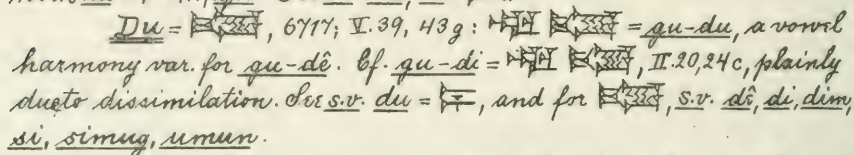 Du = 𒌤, 6717; V. 39, 43 g: 𒅗 𒌤 = gu-du, a vowel
harmony var. for gu-dê. Cf. gu-di = 𒅗 𒌤, II. 20, 24 c, plainly
due to dissimilation. See s.v. du = , and for 𒌤, s.v. dê, di, dim,
si, simug, umun.